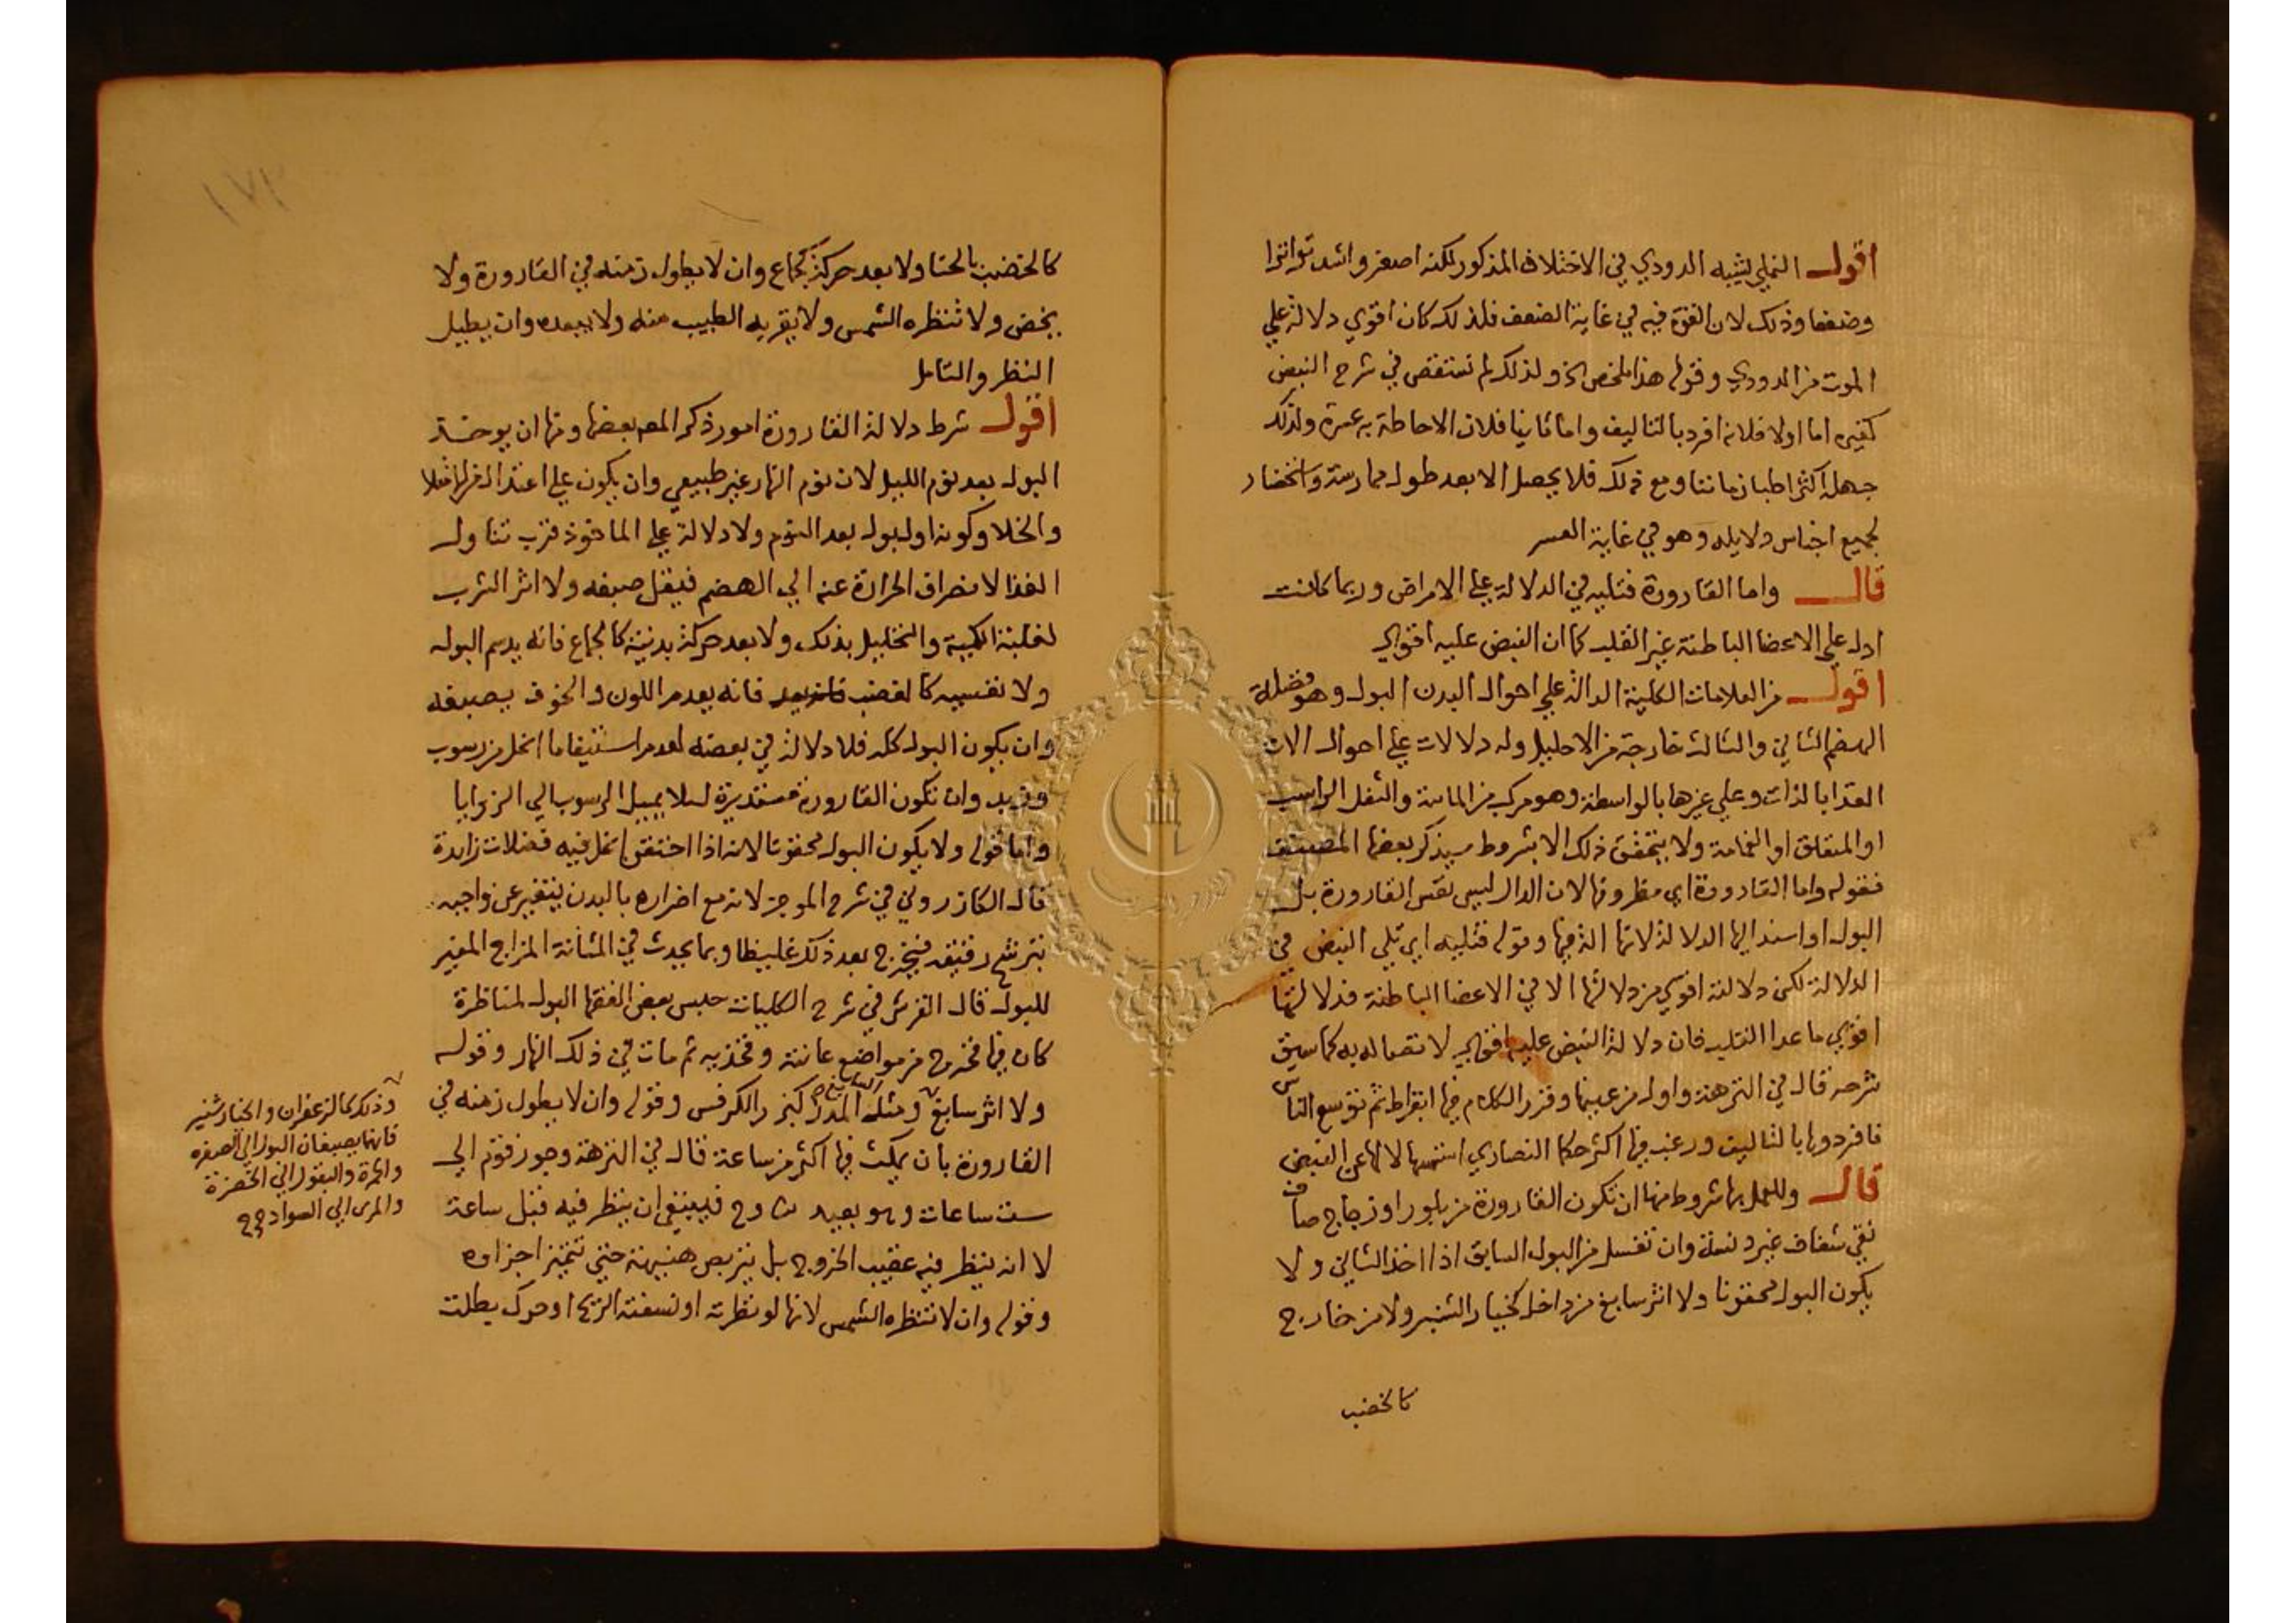 اقول النملي يشبه الدودي في الاختلاف المذكور لكنه اصغر واشد تواترا
وضعفا وذلك لان القوة فيه في غاية الضعف فلذلك كان اقوي دلالة علي
الموت من الدودي وقوله هذا ملخص الخ ولذلك لم نستقص في شرح النبض
كغيره اما اولا فلانه افرد بالتاليف واما ثانيا فلان الاحاطة به عسرة ولذلك
جهله اكثر اطبا زماننا ومع ذلك فلا يحصل الا بعد طول ممارسة واستحضار
لجميع اجناس دلايله وهو في غاية العسر
قال واما القارورة فتليه في الدلالة علي الامراض وربما كانت
ادل علي الاعضا الباطنة غير القلب كما ان النبض عليه اقوي
اقول من العلامات الكلية الدالة علي احوال البدن البول وهو فضلة
الهضم الثاني والثالث خارجة من الاحليل وله دلالات علي احوال الات
الغذا بالذات وعلي غيرها بالواسطة وهو مركب من المائية والثفل الراسب
او المتعلق او الغمامة ولا يتحقق ذلك الا بشروط سيذكر بعضها المصنف
فقوله واما القارورة اي مظروفها لان الدال ليس نفس القارورة بل
البول او اسند اليها الدلالة لانها الة فيها وقوله فتليه اي تلي النبض في
الدلالة لكن دلالته اقوي من دلالتها الا في الاعضا الباطنة فدلالتها
اقوي ما عدا القلب فان دلالة النبض عليه اقوي لاتصاله به كما سبق
شرحه قال في النزهة واول من عينها وقرر الكلام فيها ابقراط ثم توسع الناس
فافردوها بالتاليف ورغب فيها اكثر حكما النصاري استسهالا لها عن النبض
قال وللعمل بها شروط منها ان تكون القارورة من بلور او زجاج صاف
نقي شفاف غير دنسة وان تغسل من البول السابق اذا اخذ الثاني ولا
يكون البول محقونا ولا اثر سابغ من داخل كخيار الشنبر ولا من خارج
كالخضب
١٧١
كالخضب بالحنا ولا بعد حركة كجماع وان لا يطول زمنه في القارورة ولا
يخض ولا تنظره الشمس ولا يقربه الطبيب منه ولا يبعده وان يطيل
النظر والتامل
اقول شرط دلالة القارورة امور ذكر المص بعضها ومنها ان يوخذ
البول بعد نوم الليل لان نوم النهار غير طبيعي وان يكون علي اعتدال
والخلا وكونه اول بول بعد النوم ولا دلالة علي الماخوذ قرب تناول
الغذا لانصراف الحرارة عنه الي الهضم فيقل صبغه ولا اثر الشرب
لغلبة الكمية والتحليل بذلك ولا بعد حركة بدنية كالجماع فانه يدسم البول
ولا نفسيه كالغضب فانه يعدم اللون والخوف يصبغه
وان يكون البول كله فلا دلالة في بعضه لعدم استيفا ما انحل من رسوب
وزبد وان تكون القارورة مستديرة ليلا يميل الرسوب الي الزوايا
واما قوله ولا يكون البول محقونا لانه اذا احتقن انحل فيه فضلات زايدة
قال الكازروني في شرح الموجز لانه مع اضراره بالبدن يتغير عن واجبه
بترشح رقيقه فيخرج بعد ذلك غليظا وبما يحدث في المثانة المزاج المغير
للبول قال القرشي في شرح الكليات حبس بعض الفقها البول لمناظرة
كان فيها فخرج من مواضع عانته وفخذيه ثم مات في ذلك النهار وقوله
ولا اثر سابغ ومثله المدر كبزر الكرفس وقوله وان لا يطول زمنه في
القارورة بان يمكث فيها اكثر من ساعة قال في النزهة وجوز قوم الي
ست ساعات وهو بعيد فينبغي ان ينظر فيه قبل ساعة
لا انه ينظر فيه عقيب الخروج بل يتربص هنيهة حتي تتميز اجزاوه
وقوله وان لا تنظره الشمس لانها لو نظرته او نسفته الريح او حرك بطلت
وذلك كالزعفران والخيار شنبر
فانهما يصبغان البول الي الصفره
والحمرة والبقول الي الخضرة
والمري الي السواد